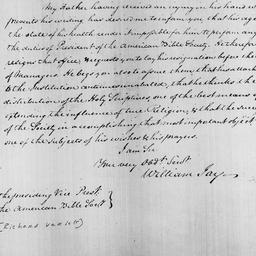 My Father having received an injury in his hand w
prevents his writing has desired me to inform you that his age
the state of his health render it impossible for him to perform any
the duties of President of the American Bible Society. He therefore
resigns that office, & requests you to lay his resignation before the
of Managers. He begs you also to assure them that his attach
to the Institution continues unabated; that he thinks the
distribution of the Holy Scriptures one of the best means of
extending the influence of true Religion, & that the success
of the Society in accomplishing that most important object
one of the subjects of his wishes & his prayers.
I am Sir
Your very obdt. Servt
William Jay
the presiding Vice Prest.
the American Bible Socty
(Richard Varick)